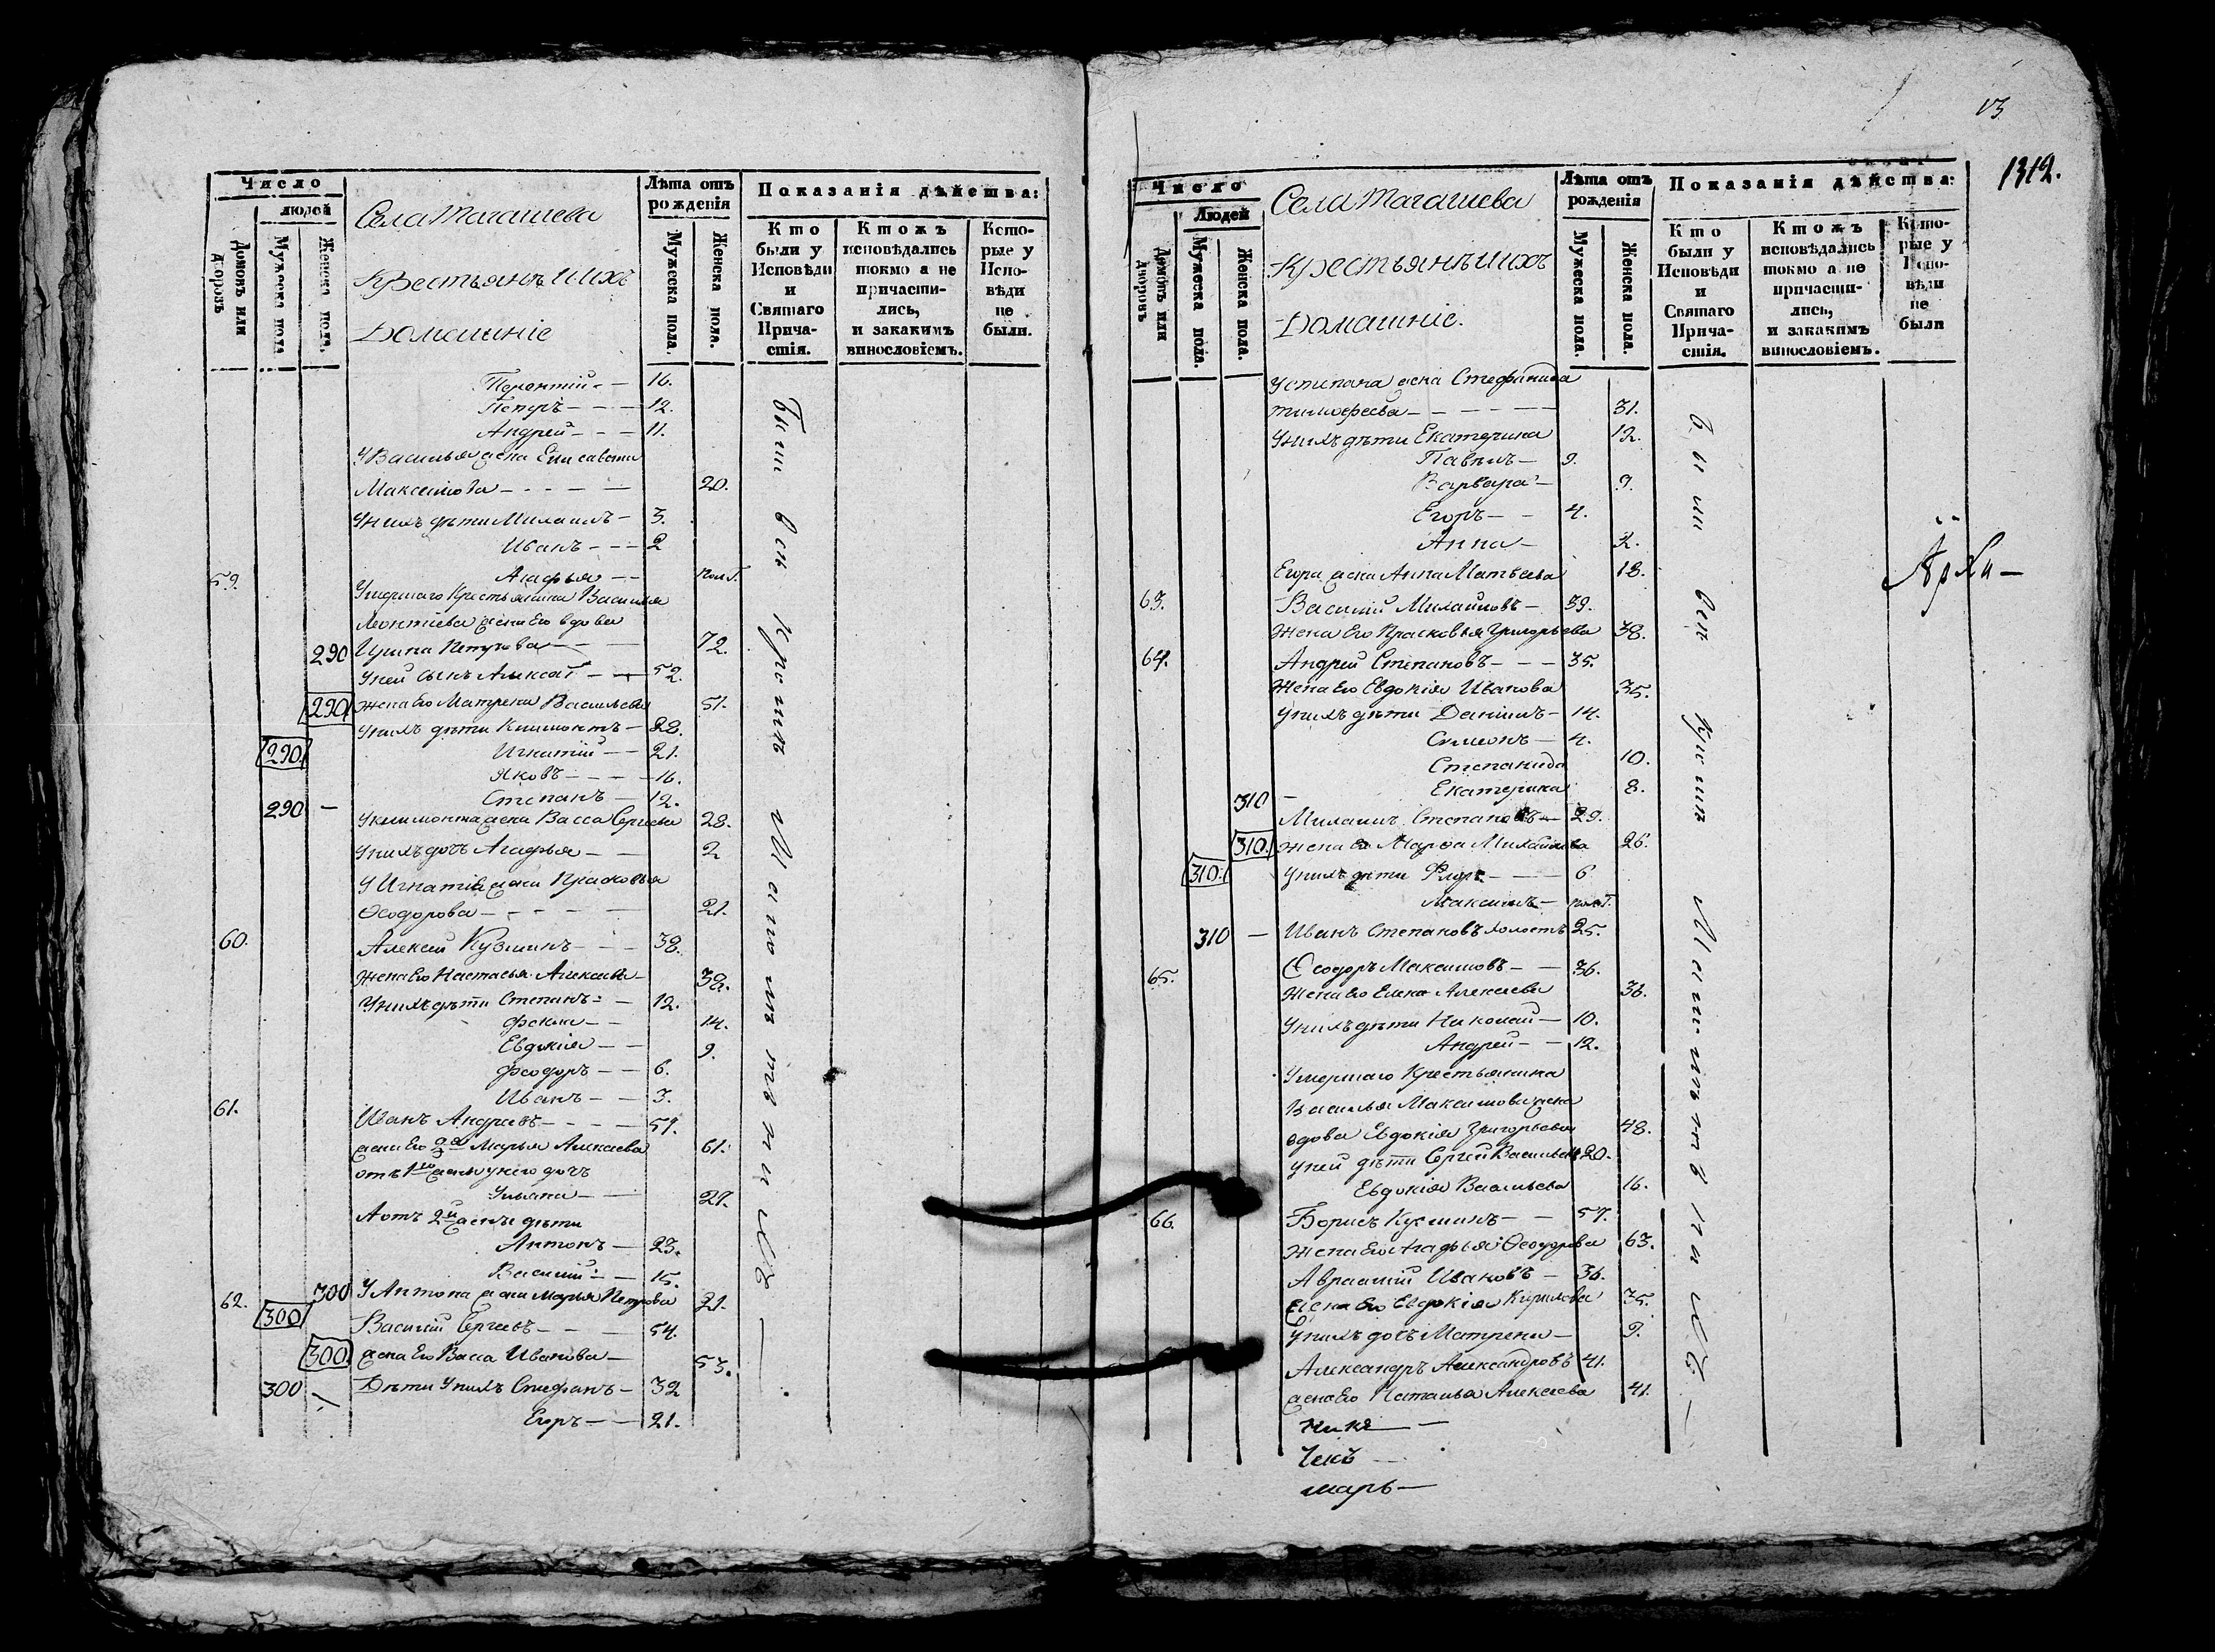 Число
людей
Домовъ или дворовъ
Мужеска пола
Женска пола.
Села Тагашева
Крестьянѣ и ихъ
Домашніе
Лѣта отъ рожденія
Мужеска пола.
Женска пола.
Показанія дѣйства:
Кто были у Исповѣди и Святаго Прича-стія.
Ктожъ исповѣдались токмо а не причасти-лись, и закакимъ винословіемъ.
Кото-рые у Испо-вѣди не были.
16.
Петръ - - - 12.
Андрей - - - 11.
У Василья жена Елисавета
Максимова - - - - 20.
У нихъ дѣти Михаилъ - 3.
Иванъ - - - 2
Агафья - - пол.г.
59. Умершаго Крестьянина Василья
Леонтіева жена Его вдова
290 Ирина Петрова - - 72.
У ней сынъ Алексѣй - - 52.
290 жена Его Матрена Васильева 51.
У нихъ дѣти Климонтъ - 28.
290 Игнатій - - 21.
Яковъ - - - - 16.
Степанъ - 12.
290 - У климонта жена Васса Сергѣева 28.
У нихъ дочь Агафья - - 2
У Игнатія жена Прасковья
Ѳеодорова - - - - - 21.
60. Алексѣй Кузминъ - - - 38.
жена Его Настасья Алексѣева - 38.
У нихъ дѣти Степанъ - - 12.
Фекла - - 14.
Евдокія - - 9.
Феодоръ - - 6.
Иванъ - - 3.
61. Иванъ Андреевъ - - - - 59.
жена Его 2я Марья Алексѣева 61.
отъ 1й жены у него дочь
Ульяна - - 27.
А отъ 2й жены дѣти
Антонъ - 23.
Василій - - 15.
300 У Антона жена Марья Петрова 21.
62. 300 Василій Сергѣевъ - - - 54.
300 жена Его Васса Иванова - 53.
300 - Дѣти У нихъ Стефанъ - 32
Егоръ - - 21.
Были всѣ кромѣ
13
1312.
Число
Людей
Домовъ или дворовъ
Мужеска пола.
Женска пола.
Села Тагашева
Крестьянѣ и ихъ
Домашніе.
Лѣта отъ рожденія
Мужеска пола.
Женска пола.
Показанія дѣйства:
Кто были у Исповѣди и Святаго Прича-стія.
Ктожъ исповѣдались токмо а не причасти-лись, и закакимъ винословіемъ.
Кото-рые у Испо-вѣди не были
У степана жена Стефанида
тимофеева - - - - - 31.
У нихъ дѣти Екатерина 12.
Павелъ - 9.
Варвара - 9.
Егоръ - - 4.
Анна - 2.
Егора жена Анна Матвѣева 18.
63. Василій Михайловъ - 39.
жена Его Прасковья Григорьева 38.
64. Андрей Степановъ - - - 35.
жена Его Евдокія Иванова 35.
У нихъ дѣти Даніилъ - 14.
Симеонъ - 4.
Степанида 10.
310 - Екатерина 8.
Михаилъ Степановъ - 29.
310. жена Его Марфа Михайлова 26.
310. У нихъ дѣти Флоръ - - - 6
Максимъ - пол.г.
310 - Иванъ Степановъ холостъ 25.
65. Ѳеодоръ Максимовъ - - 36.
жена Его Елена Алексѣева 36.
У нихъ дѣти Николай - 10.
Андрей - - 12.
Умершаго Крестьянина
Василья Максимова жена
вдова Евдокія Григорьева 48.
У ней дѣти Сергѣй Васильевъ 20.
Евдокія Васильева 16.
66. Борисъ Кузминъ - - 57.
жена Его Агафья Ѳеодорова 63.
Авраамій Ивановъ - 36.
жена Его Евдокія Кирилова 35.
У нихъ дочь Матрена - 9.
Александръ Александровъ 41.
жена Его Наталья Алексѣева 41.
Были всѣ кромѣ